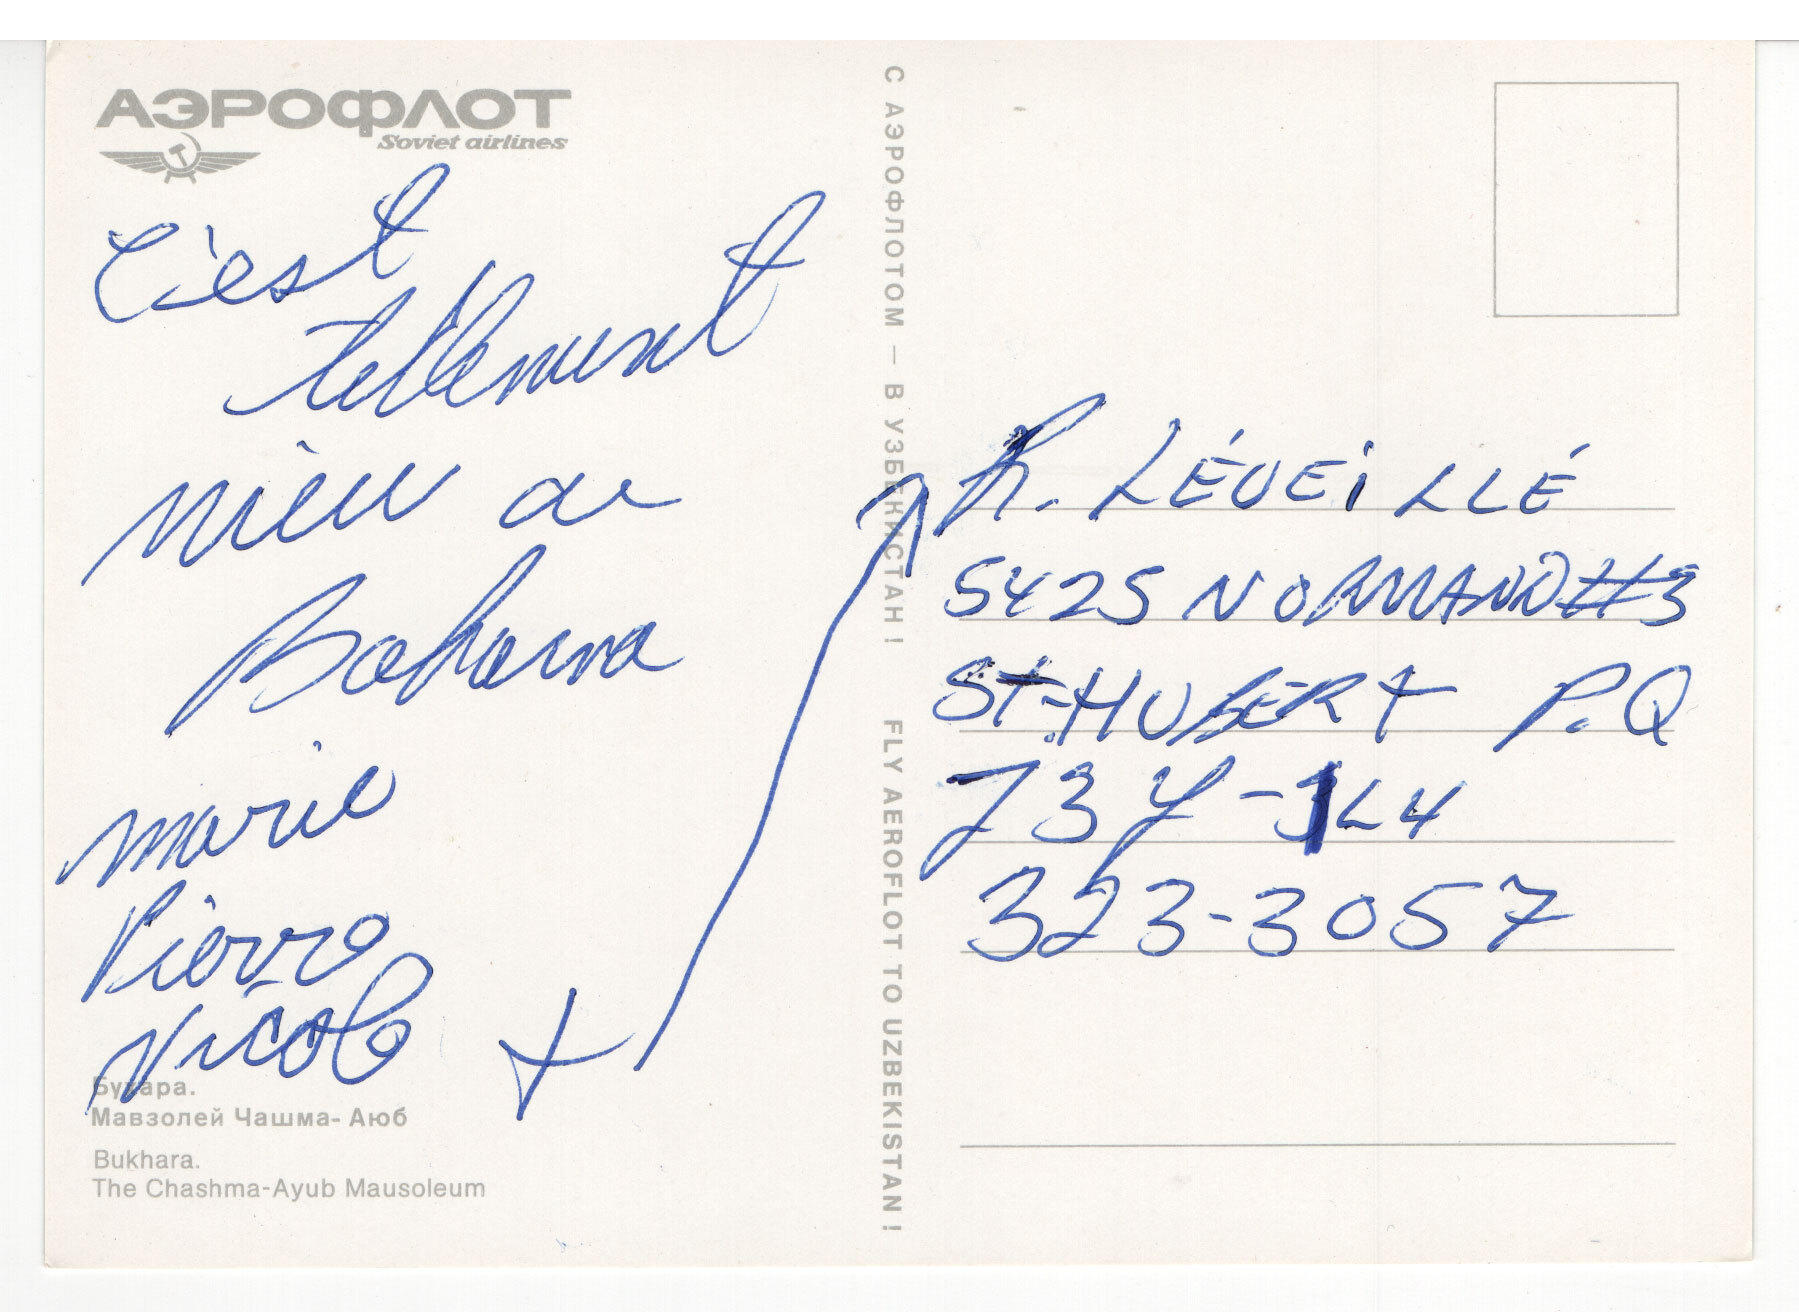 АЭРОФЛОТ
Soviet airlines
C'est
tellement
mieu au
Bahama
marie
Pierre
Nicole
С АЭРОФЛОТОМ – В УЗБЕКИСТАН! FLY AEROFLOT TO UZBEKISTAN!
R. LÉVEILLÉ
5425 NORMAND #3
ST-HUBERT P.Q
J3Y - L4
323-3057
Бухара.
Мавзолей Чашма-Аюб
Bukhara.
The Chashma-Ayub Mausoleum